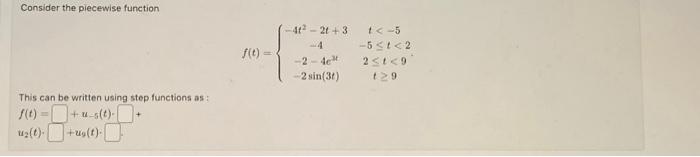 Consider the piecewise function
f(t) = { −4t² − 2t + 3 t < −5
−4 −5 ≤ t < 2
−2 − 4e³ᵗ 2 ≤ t < 9
−2 sin(3t) t ≥ 9 .
This can be written using step functions as :
f(t) = + u₋₅(t)· +
u₂(t)· +u₉(t)· .